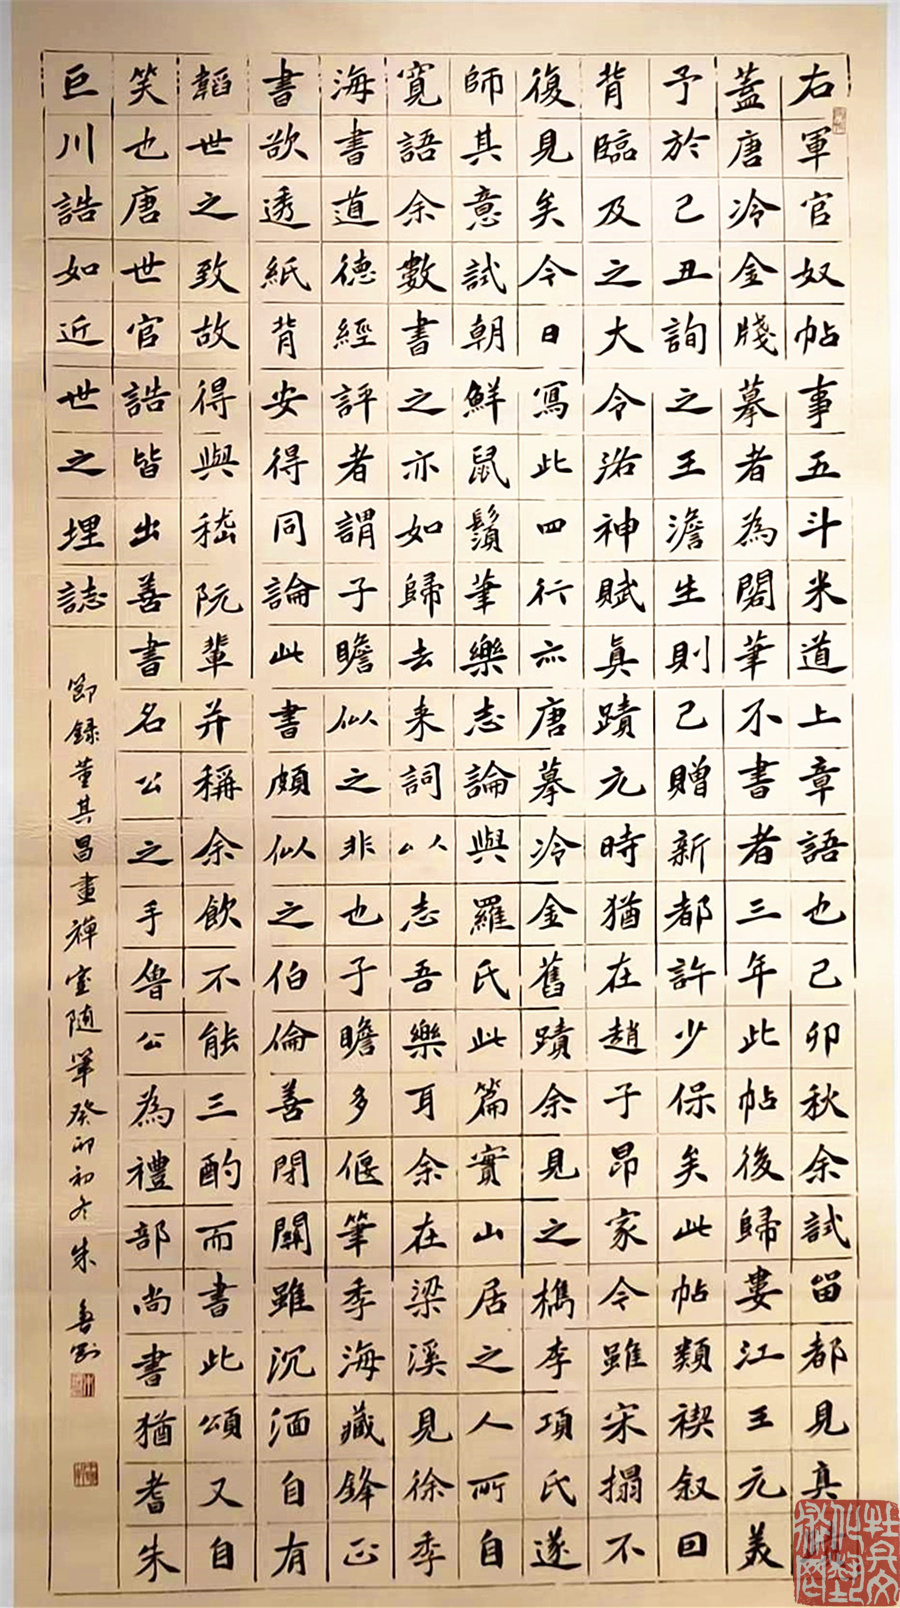 右軍官奴帖事五斗米道上章語也己卯秋余試留都見真
蓋唐冷金牋摹者為閣筆不書者三年此帖後歸婁江王元美
予於己丑詢之王澹生則已贈新都許少保矣此帖類禊叙回
背臨及之大令洛神賦真蹟元時猶在趙子昂家今雖宋搨不
復見矣今日寫此四行亦唐摹冷金舊蹟余見之檇李項氏遂
師其意試朝鮮鼠鬚筆樂志論與羅氏此篇實山居之人所自
寬語余數書之亦如歸去来詞以志吾樂耳余在梁溪見徐季
海書道德經評者謂子瞻似之非也子瞻多偃筆季海藏鋒正
書欲透紙背安得同論此書頗似之伯倫善閉關雖沉湎自有
韜世之致故得與嵇阮輩并稱余飲不能三酌而書此頌又自
笑也唐世官誥皆出善書名公之手魯公為禮部尚書猶書朱
巨川誥如近世之埋誌
節録董其昌畫禅室随筆癸卯初冬朱